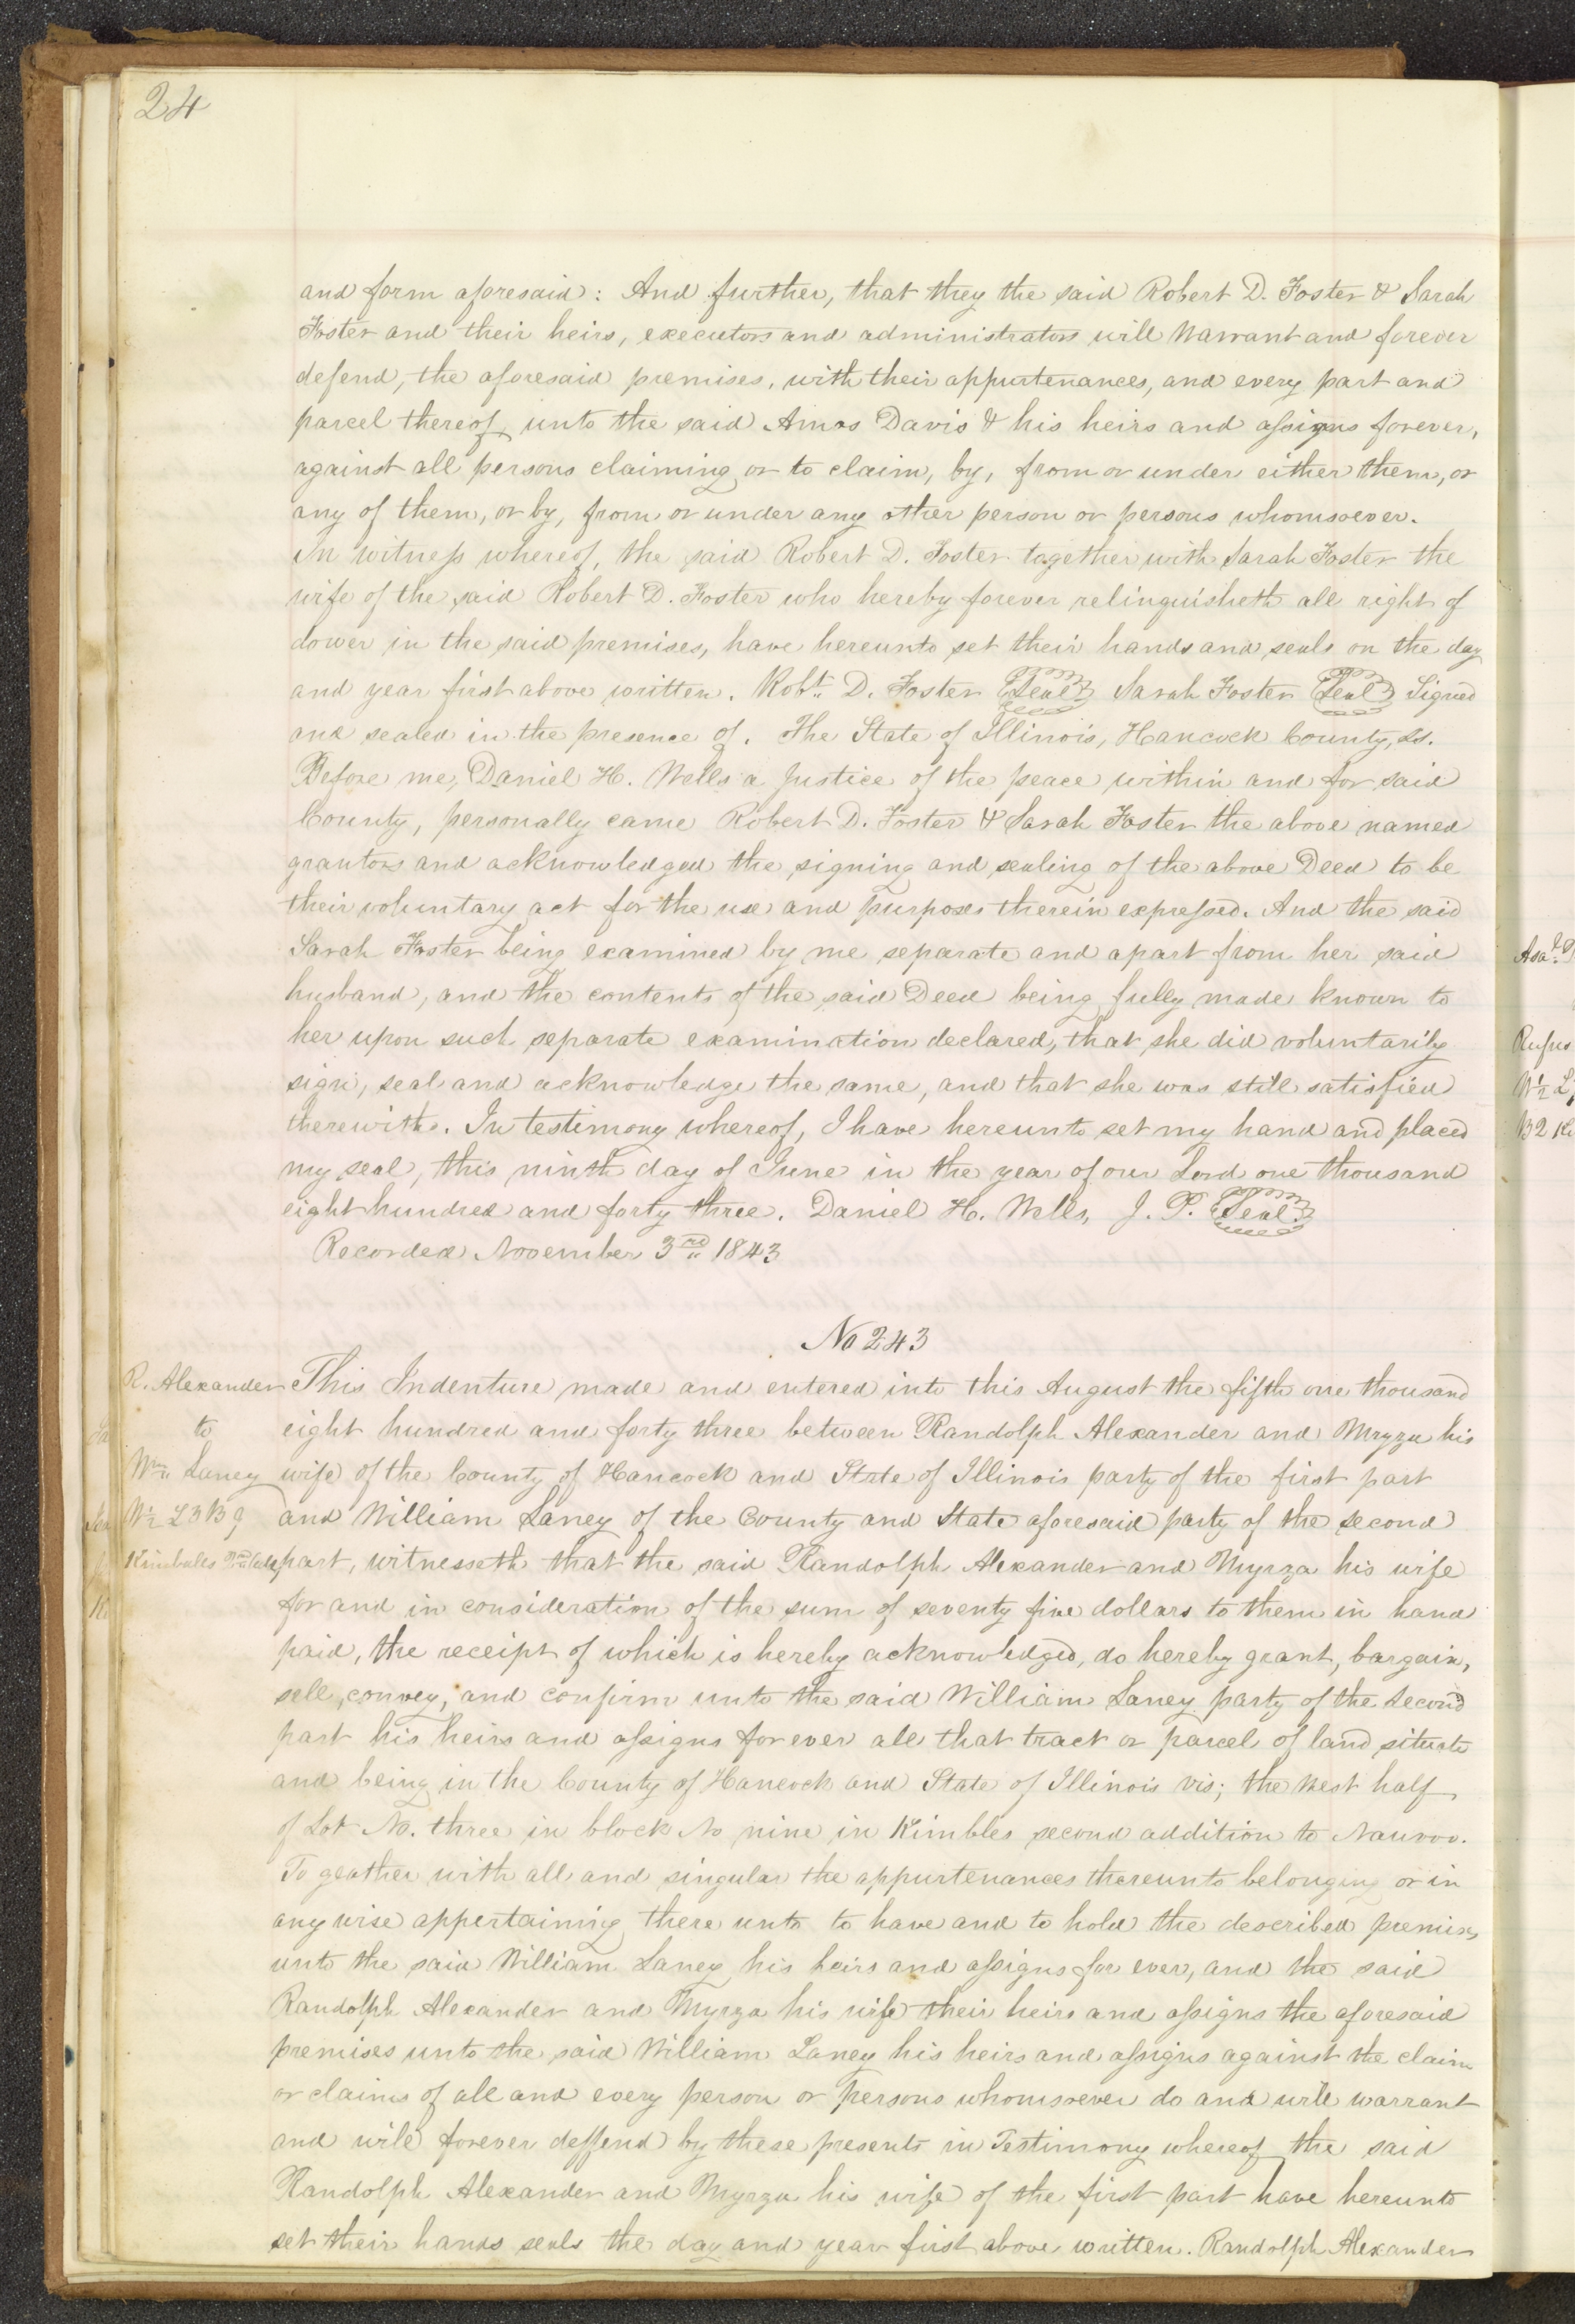 24
and form aforesaid: And further, that they the said Robert D. Foster & Sarah
Foster and their heirs, executors and administrators will Warrant and forever
defend, the aforesaid premises, with their appurtenances, and every part and
parcel thereof, unto the said Amos Davis & his heirs and assigns forever,
against all persons claiming or to claim, by, from or under either them, or
any of them, or by, from or under any other person or persons whomsoever.
In witness whereof, the said Robert D. Foster together with Sarah Foster the
wife of the said Robert D. Foster who hereby forever relinquisheth all right of
dower in the said premises, have hereunto set their hands and seals on the day
and year first above written. Robt. D. Foster Seal Sarah Foster Seal Signed
and sealed in the presence of. The State of Illinois, Hancock County, ss.
Before me, Daniel H. Wells a Justice of the peace within and for said
County, personally came Robert D. Foster & Sarah Foster the above named
grantors and acknowledged the signing and sealing of the above Deed to be
their voluntary act for the use and purposes therein expressed. And the said
Sarah Foster being examined by me separate and apart from her said
husband, and the contents of the said Deed being fully made known to
her upon such separate examination declared, that she did voluntarily
sign, seal and acknowledge the same, and that she was still satisfied
therewith. In testimony whereof, I have hereunto set my hand and placed
my seal, this ninth day of June in the year of our Lord one thousand
eight hundred and forty three. Daniel H. Wells, J. P. Seal
Recorded November 3rd 1843
No 243
R. Alexander
to
Wm Laney
W 1/2 L 3 B 9
Kimbales 2nd
This Indenture made and entered into this August the fifth one thousand
eight hundred and forty three between Randolph Alexander and Myrza his
wife of the County of Hancock and State of Illinois party of the first part
and William Laney of the County and State aforesaid party of the second
part, witnesseth that the said Randolph Alexander and Myrza his wife
for and in consideration of the sum of seventy five dollars to them in hand
paid, the receipt of which is hereby acknowledged, do hereby grant, bargain,
sell, convey, and confirm unto the said William Laney party of the second
part his heirs and assigns for ever all that tract or parcel of land situate
and being in the County of Hancock and State of Illinois vis; the West half
of Lot No. three in block No nine in Kimbles second addition to Nauvoo.
To geather with all and singular the appurtenances thereunto belonging or in
any wise appertaining there unto to have and to hold the described premises
unto the said William Laney his heirs and assigns for ever, and the said
Randolph Alexander and Myrza his wife their heirs and assigns the aforesaid
premises unto the said William Laney his heirs and assigns against the claim
or claims of all and every person or persons whomsoever do and will warrant
and will forever deffend by these presents in Testimony whereof the said
Randolph Alexander and Myrza his wife of the first part have hereunto
set their hands seals the day and year first above written. Randolph Alexander
Rufus
W 1/2 L